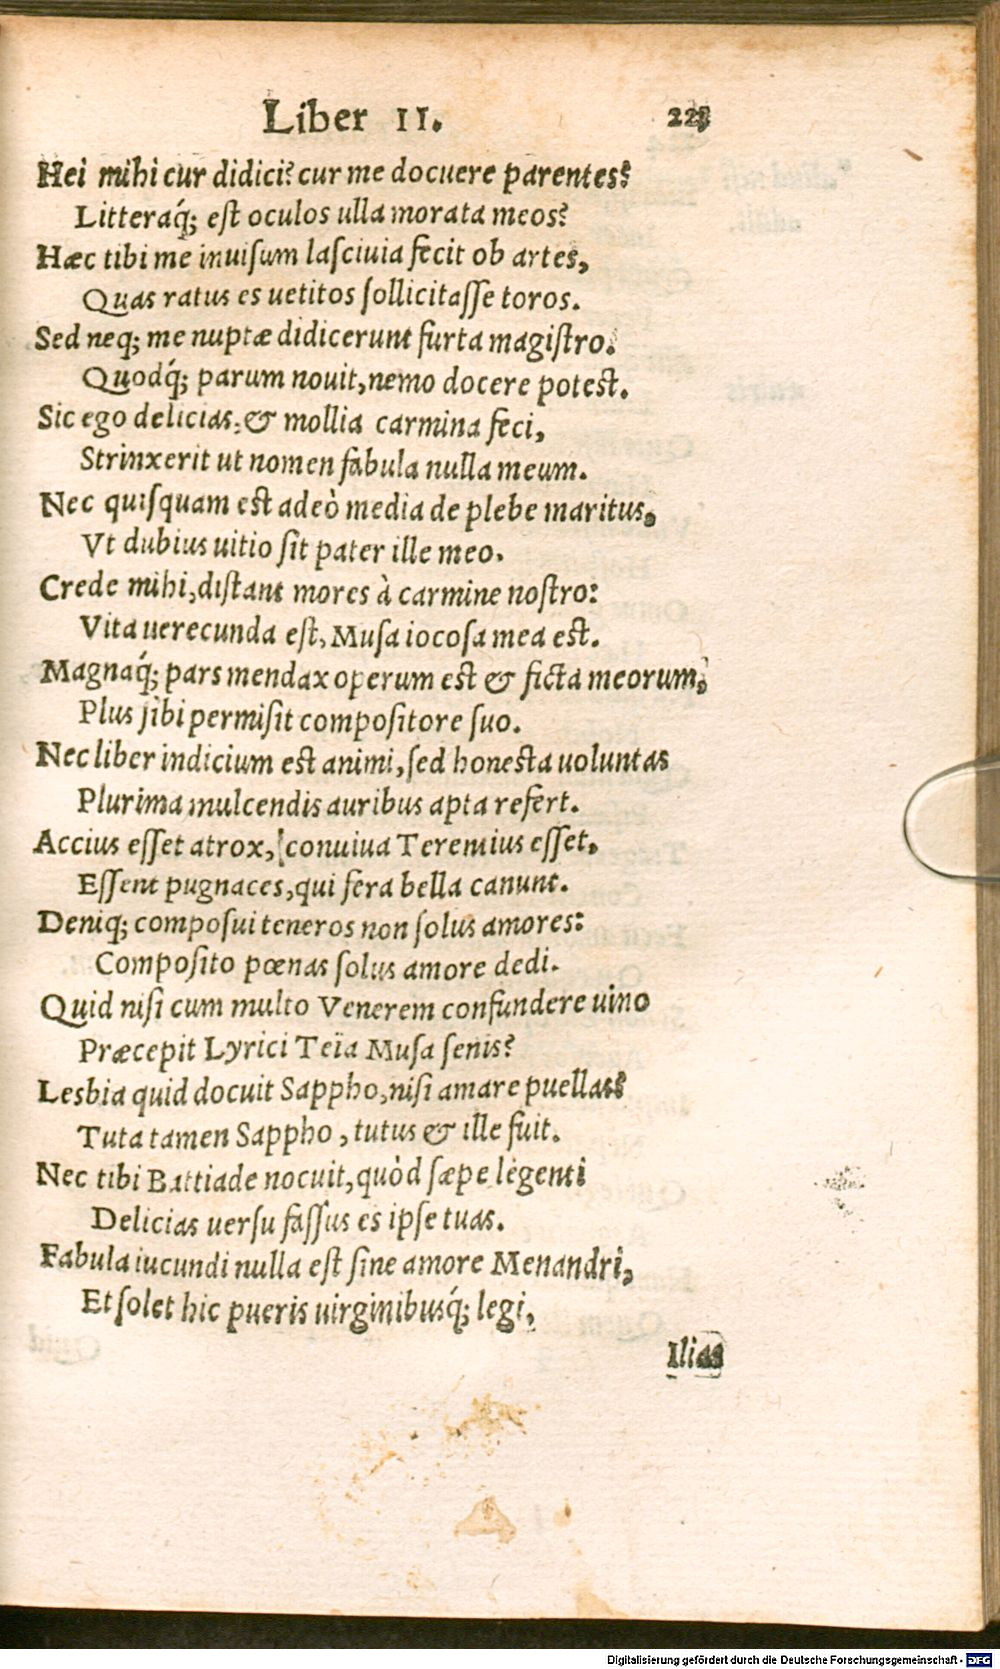 Liber II. 223
Hei mihi cur didici? cur me docuere parentes?
Litteraq́; est oculos ulla morata meos?
Hæc tibi me inuisum lasciuia fecit ob artes,
Quas ratus es uetitos sollicitasse toros.
Sed neq; me nuptæ didicerunt furta magistro.
Quodq́; parum nouit, nemo docere potest.
Sic ego delicias, & mollia carmina feci,
Strinxerit ut nomen fabula nulla meum.
Nec quisquam est adeò media de plebe maritus,
Vt dubius uitio sit pater ille meo.
Crede mihi, distant mores à carmine nostro:
Vita uerecunda est, Musa iocosa mea est.
Magnaq́; pars mendax operum est & ficta meorum,
Plus sibi permisit compositore suo.
Nec liber indicium est animi, sed honesta uoluntas
Plurima mulcendis auribus apta refert.
Accius esset atrox, conuiua Teremius esset,
Essent pugnaces, qui fera bella canunt.
Deniq; composui teneros non solus amores:
Composito pœnas solus amore dedi.
Quid nisi cum multo Venerem confundere uino
Præcepit Lyrici Teïa Musa senis?
Lesbia quid docuit Sappho, nisi amare puellas?
Tuta tamen Sappho, tutus & ille fuit.
Nec tibi Battiade nocuit, quòd sæpe legenti
Delicias uersu fassus es ipse tuas.
Fabula iucundi nulla est sine amore Menandri,
Et solet hic pueris uirginibusq́; legi,
Ilias
Digitalisierung gefördert durch die Deutsche Forschungsgemeinschaft - DFG